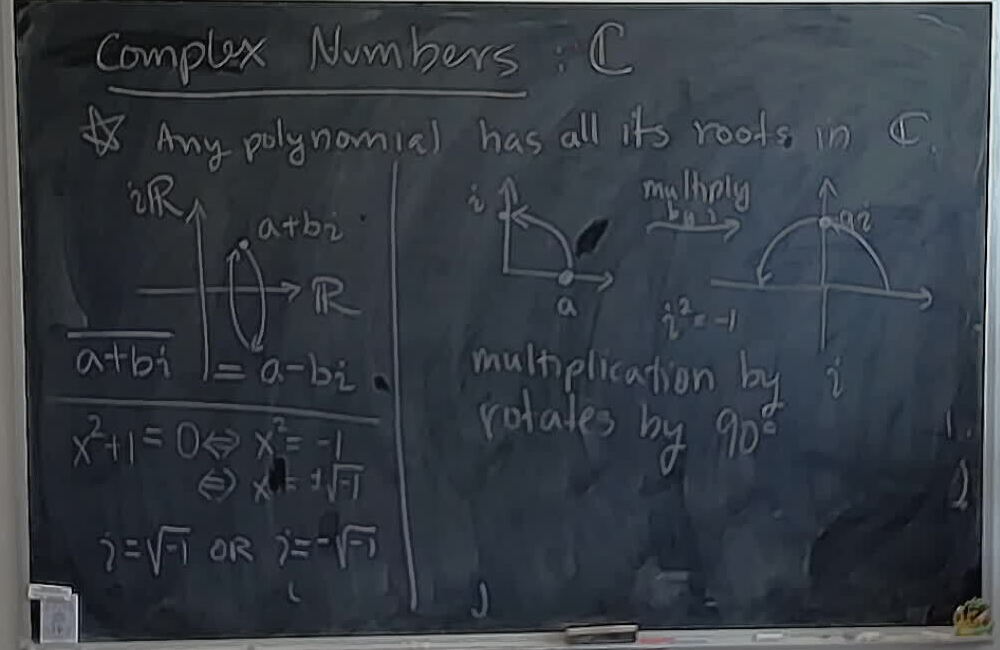 Complex Numbers : ℂ
☆ Any polynomial has all its roots in ℂ.
iℝ
a+bi
ℝ
\overline{a+bi} = a-bi
x²+1=0 ⇔ x²=-1
⇔ x = ±√-1
i=√-1 OR i=-√-1
i
a
multiply
by i
ai
i²=-1
multiplication by i
rotates by 90°